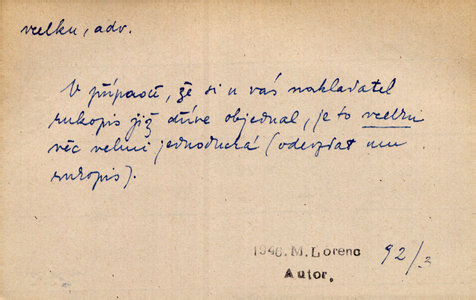 vcelku, adv.
V případě, že si u vás nakladatel
rukopis již dříve objednal, je to vcelku
věc velmi jednoduchá (odevzdat mu
rukopis).
1946. M. Lorenc 92/2
Autor.